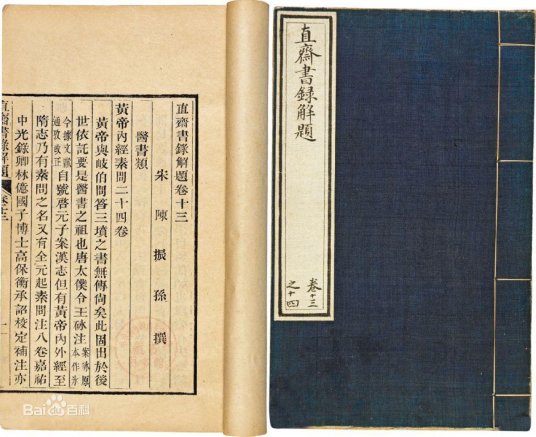 直齋書錄解題卷十三
宋 陳 振 孫 撰
醫書類
黃帝內經素問二十四卷
黃帝與岐伯問答三墳之書無傳尙矣此固出於後
世依託要是醫書之祖也唐太僕令王砅注案砅原本作冰
今據文獻通攷改正自號啓元子案漢志但有黃帝內外經至
隋志乃有素問之名又有全元起素問注八卷嘉祐
中光錄卿林億國子博士高保衡承詔校定補注亦
直齋書錄解題 卷十三 一
直齋書錄解題
卷十三
之十四
Bai百科